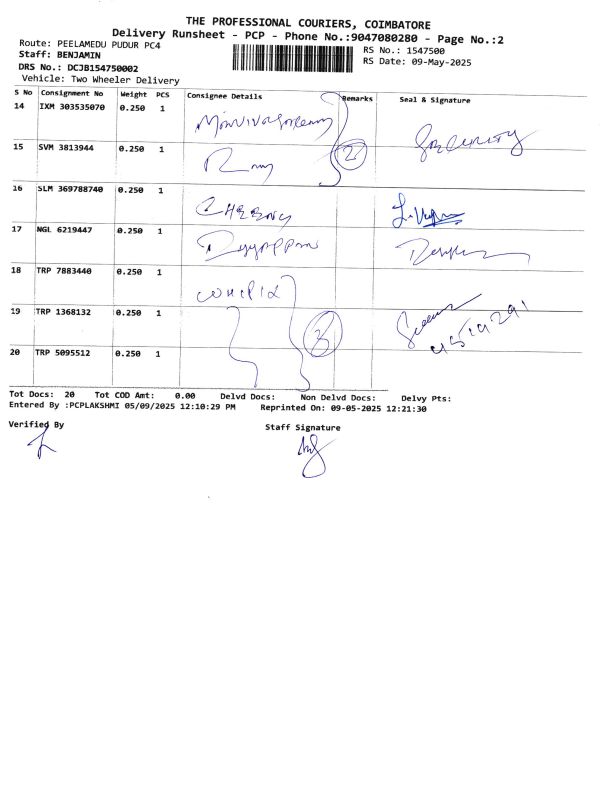 THE PROFESSIONAL COURIERS, COIMBATORE
Delivery Runsheet - PCP - Phone No.:9047080280 - Page No.:2
Route: PEELAMEDU PUDUR PC4
RS No.: 1547500
Staff: BENJAMIN
RS Date: 09-May-2025
DRS No.: DCJB154750002
Vehicle: Two Wheeler Delivery
S No Consignment No Weight PCS Consignee Details Remarks Seal & Signature
14 IXM 303535070 0.250 1
15 SVM 3813944 0.250 1 2 SECURITY
16 SLM 369788740 0.250 1
17 NGL 6219447 0.250 1
18 TRP 7883440 0.250 1
19 TRP 1368132 0.250 1 3
20 TRP 5095512 0.250 1
Tot Docs: 20 Tot COD Amt: 0.00 Delvd Docs: Non Delvd Docs: Delvy Pts:
Entered By :PCPLAKSHMI 05/09/2025 12:10:29 PM Reprinted On: 09-05-2025 12:21:30
Verified By
Staff Signature